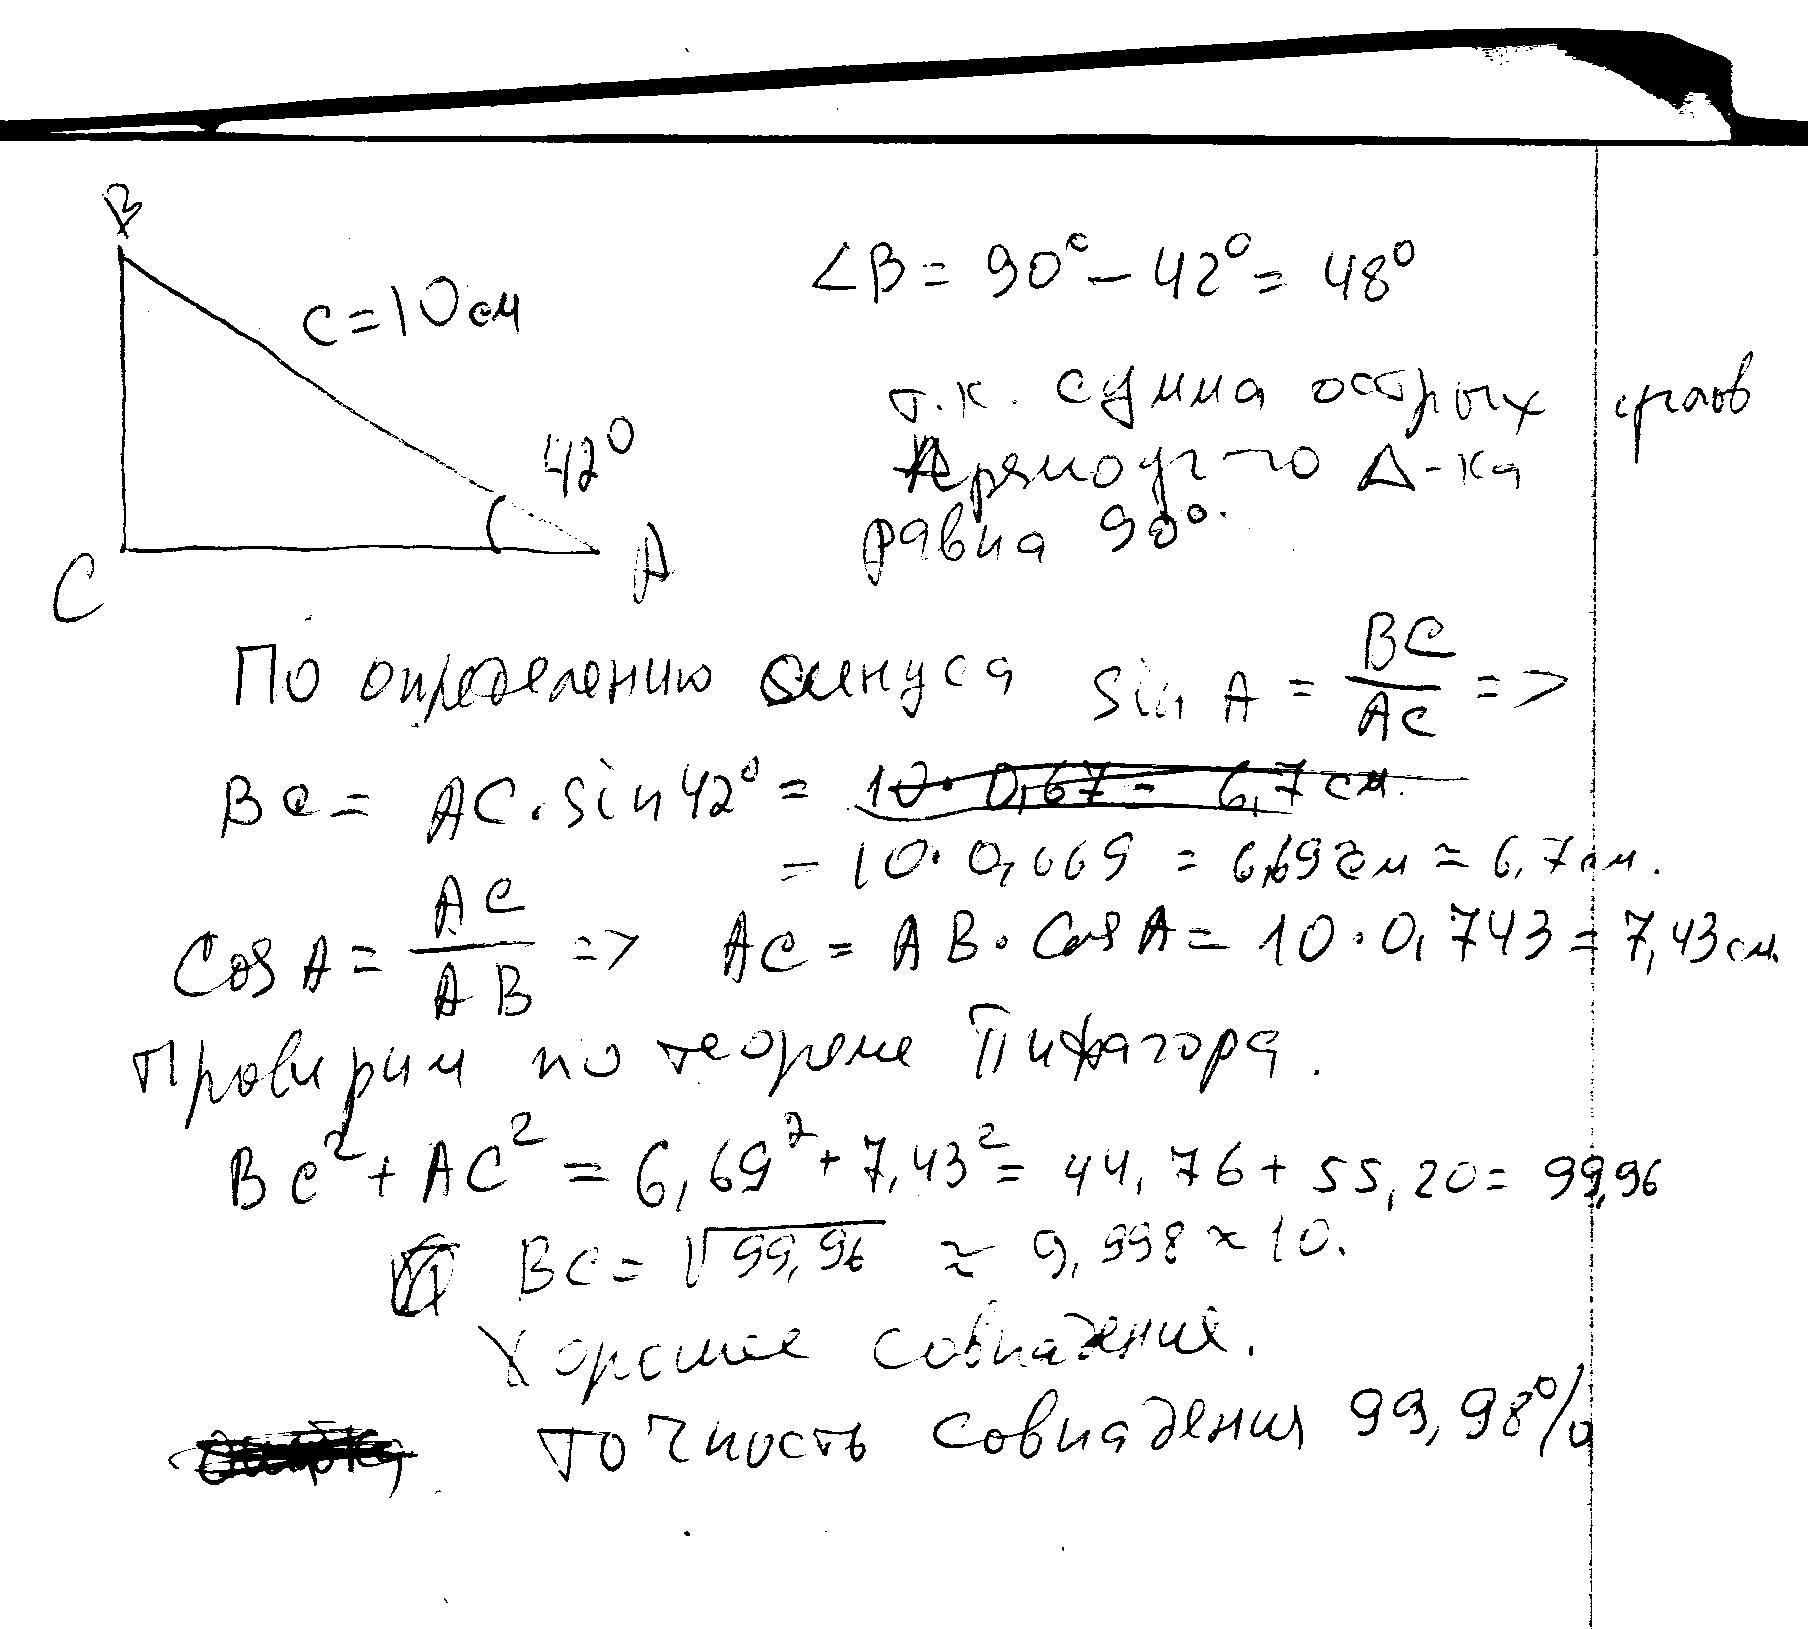 B
c=10см
42°
C
A
∠B = 90° - 42° = 48°
т.к. сумма острых углов
прямоуг-го Δ-ка
равна 90°.
По определению синуса sin A = BC/AC =>
BC = AC · sin 42° = 10 · 0,67 = 6,7 см.
= 10 · 0,669 = 6,69 см ≈ 6,7 см.
Cos A = AC/AB => AC = AB · Cos A = 10 · 0,743 = 7,43 см.
Проверим по теореме Пифагора.
BC² + AC² = 6,69² + 7,43² = 44,76 + 55,20 = 99,96
BC = √99,96 ≈ 9,998 ≈ 10.
Хорошее совпадение.
точность совпадения 99,98%